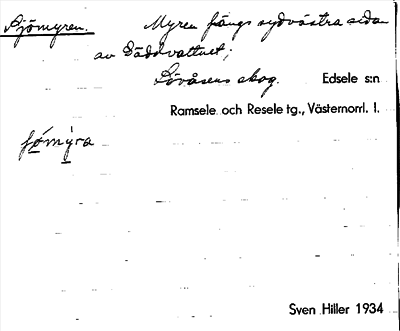 Sjömyren. Myren längs sydvästra sidan
av Gäddvattnet;
Lövåsens skog. Edsele s:n
Ramsele och Resele tg., Västernorrl. l.
fǿmy̱ra
Sven Hiller 1934